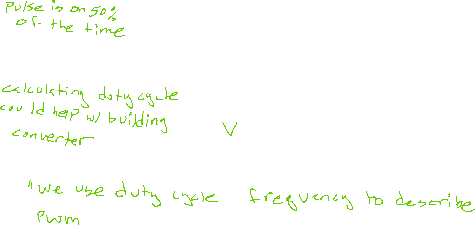 Pulse is on 50%
of the time
calculating duty cycle
could help w/ building
converter
V
"we use duty cycle frequency to describe
PWM